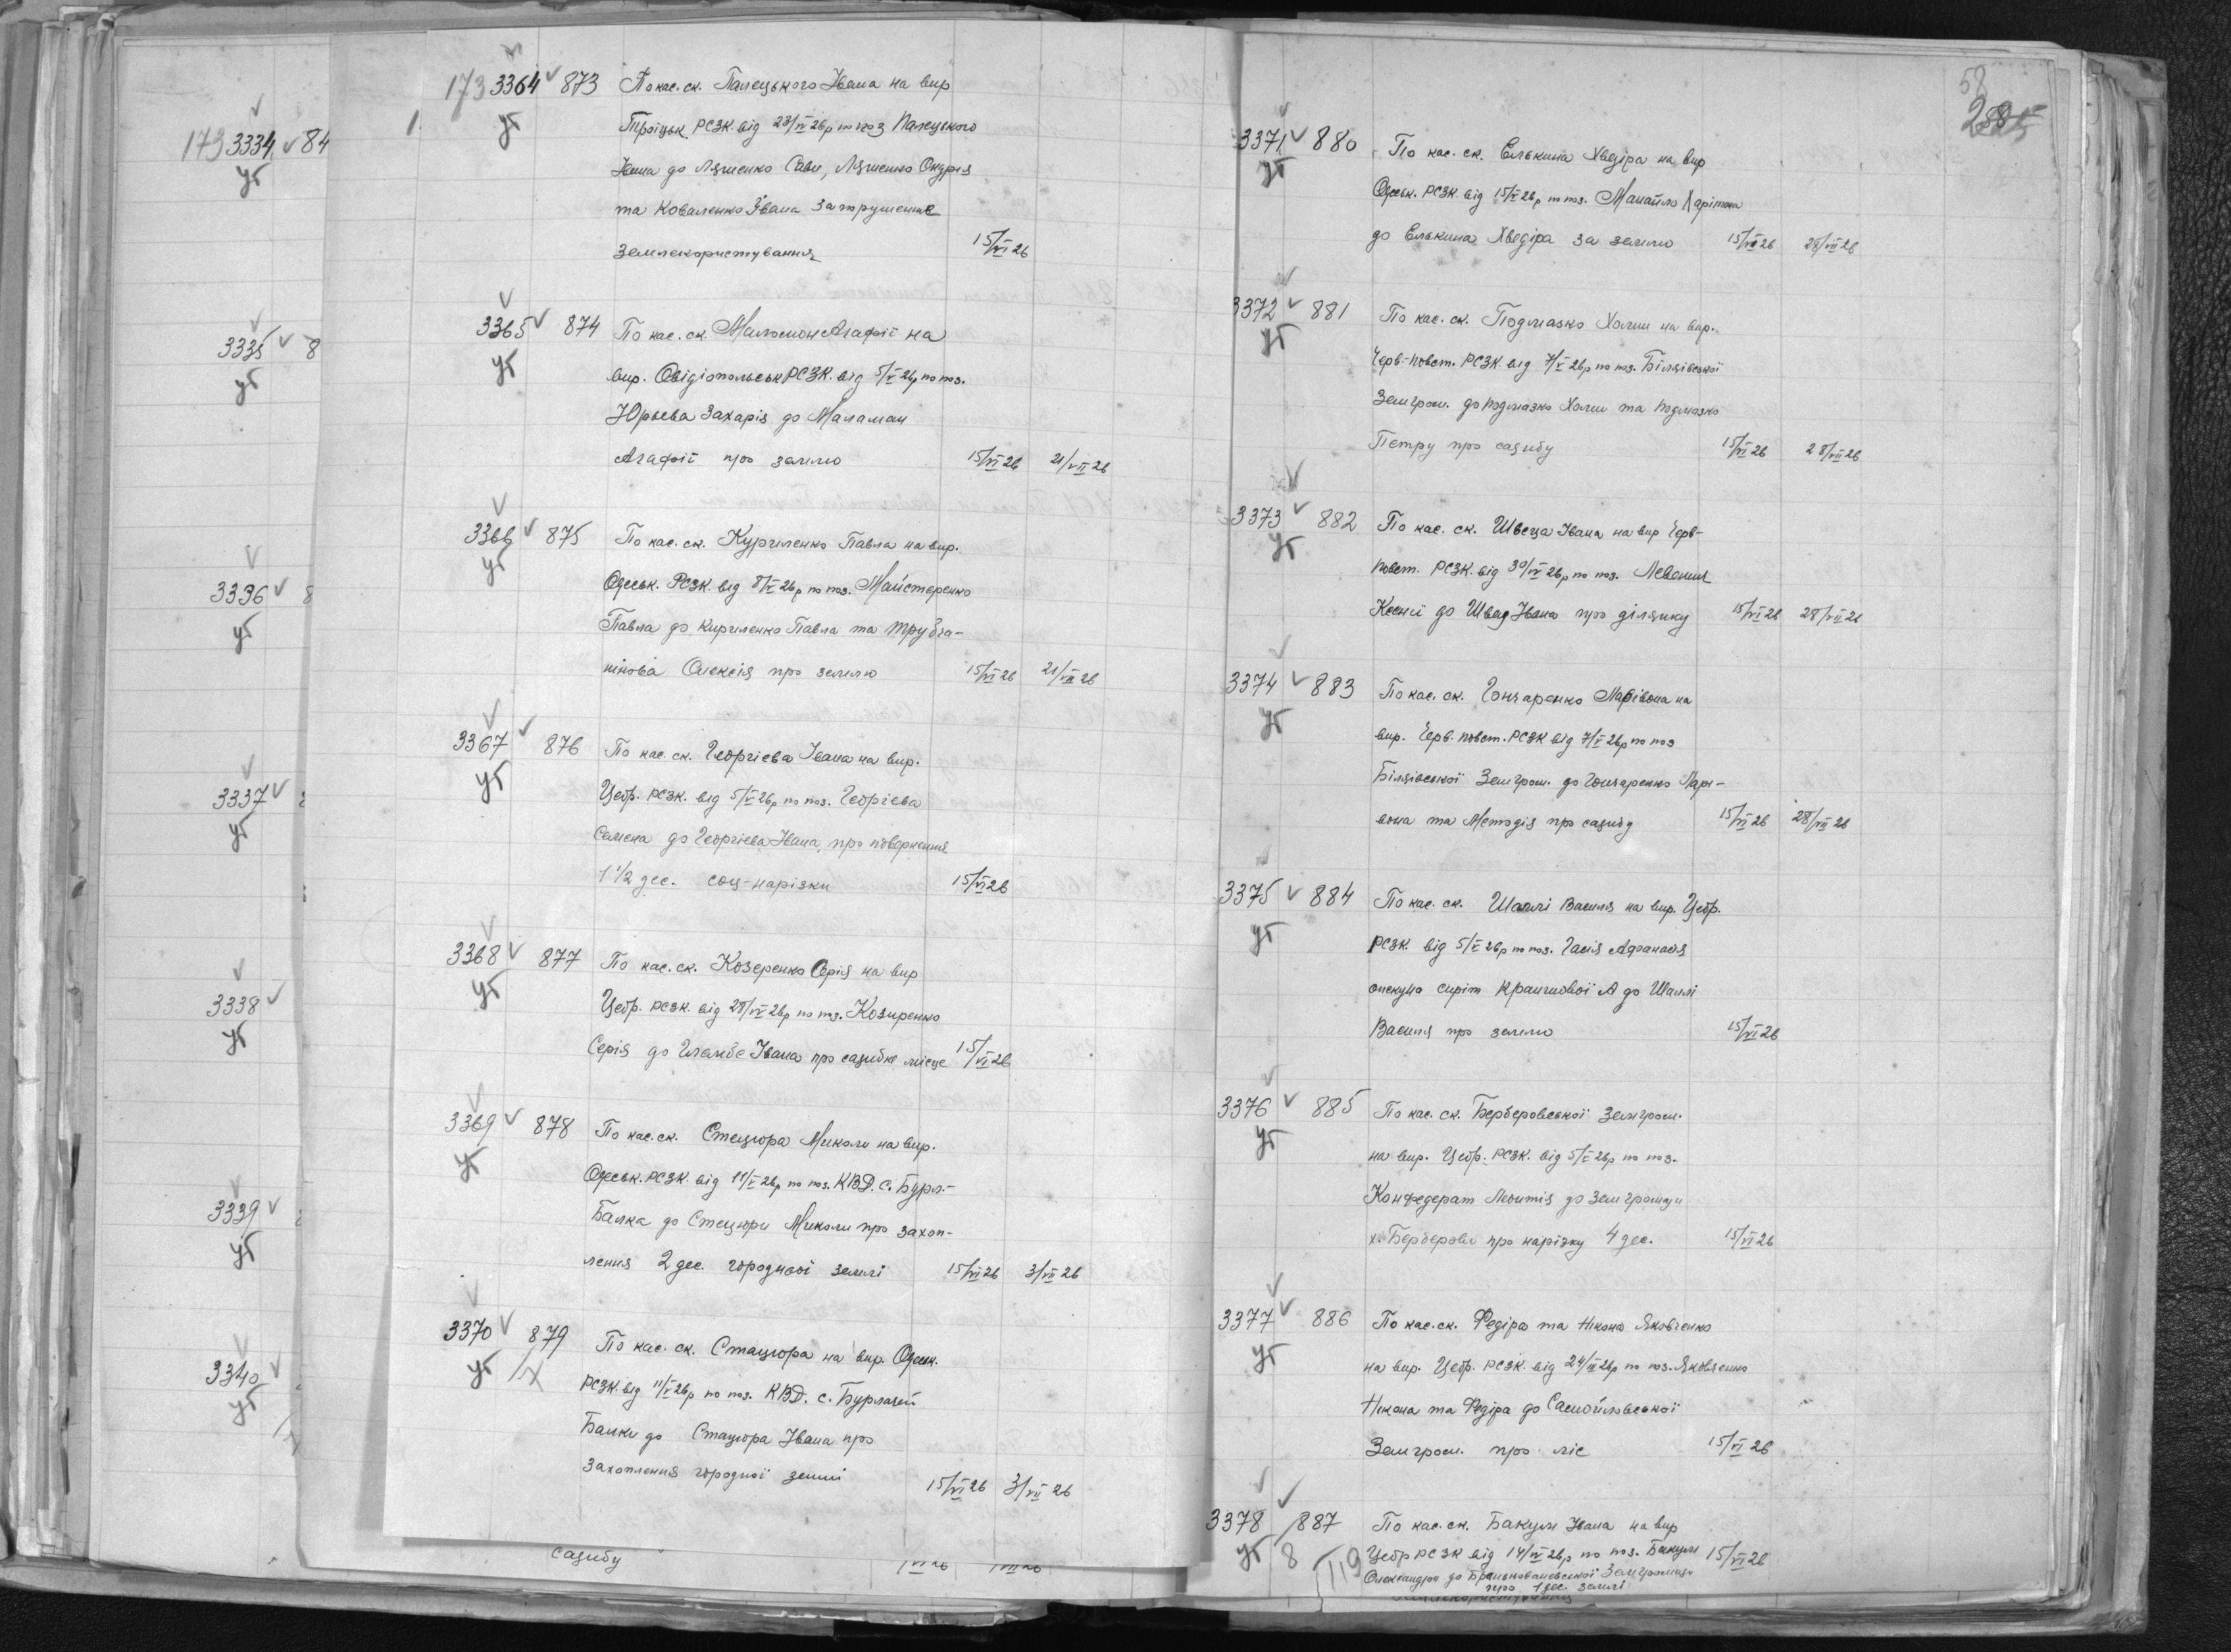 173 3334 84
ут
3335 8
ут
3336 8
ут
3337
ут
3338
ут
3339
ут
3340
ут
173 3364 873 По кас. ск. Палецького Івана на вир
1. ут Троїцьк РСЗК від 23/IV 26р по поз Палецького
Івана до Ляшенко Сави, Ляшенко Ондрія
та Коваленко Івана за порушення
землекористування 15/VI 26
3365 874 По кас. ск. Агафії на
ут вир. Овідіопольськ РСЗК. від 5/V 26р по поз.
Юрьева Захарія до Маламан
Агафії про землю 15/VI 26 21/VII 26
3366 875 По кас. ск. Кириленко Павла на вир.
ут Одеськ. РСЗК. від 8/V 26р по поз. Майстеренко
Павла до Кириленко Павла та Трубча-
нінова Олексія про землю 15/VI 26 21/VII 26
3367 876 По кас. ск. Георгієва Івана на вир.
ут Цебр. РСЗК. від 5/V 26р по поз. Георгієва
Семена до Георгієва Івана, про повернення
1 1/2 дес. соц-нарізки 15/VI 26
3368 877 По кас. ск. Козеренко Сергія на вир
ут Цебр. РСЗК. від 28/IV 26р по поз. Козиренко
Сергія до Івана про садибне місце 15/VI 26
3369 878 По кас. ск. Стецюра Миколи на вир.
ут Одеськ. РСЗК. від 11/V 26р по поз. КВД. с. Бурл.-
Балка до Стецюри Миколи про захоп-
лення 2 дес. городної землі 15/VI 26 3/VII 26
3370 879 По кас. ск. Стацюра на вир. Одеськ.
ут РСЗК. від 11/V 26р по поз. КВД. с. Бурлачей
Балки до Стацюра Івана про
захоплення городної землі 15/VI 26 3/VII 26
садибу
58
3371 880 По кас. ск. Елькина Хведіра на вир
ут Одеськ. РСЗК. від 15/V 26р по поз. Манайло Харітона
до Елькина Хведіра за землю 15/VI 26 28/VII 26
3372 881 По кас. ск. Подмазко Хоми на вир.
ут Черв.-повст. РСЗК. від 7/V 26р по поз. Біляївської
Земгром. до Подмазко Хоми та Подмазко
Петру про садибу 15/VI 26 28/VII 26
3373 882 По кас. ск. Швеца Івана на вир Черв-
ут повст. РСЗК. від 30/IV 26р по поз.
Ксенії до Івана про ділянку 15/VI 26 28/VII 26
3374 883 По кас. ск. Гончаренко Ларівона на
ут вир. Черв. повст. РСЗК від 7/V 26р по поз
Біляївської Земгром. до ГончаренкоЛарі-
вона та Методія про садибу 15/VI 26 28/VII 26
3375 884 По кас. ск. Шаллі Василя на вир. Цебр.
ут РСЗК від 5/V 26р по поз. Афанасія
опекуна сиріт А до Шаллі
Василя про землю 15/VI 26
3376 885 По кас. ск. Берберовської Земгром.
ут на вир. Цебр. РСЗК. від 5/V 26р по поз.
Конфедерат Леонтія до Земгромади
х. Берберово про нарізку 4 дес. 15/VI 26
3377 886 По кас. ск. Федіра та Нікона Яковченко
ут на вир. Цебр. РСЗК від 24/III 26р по поз. Яковченко
Нікона та Федіра до Самойлівської
Земгром. про ліс 15/VI 26
3378 887 По кас. ск. Бакули Івана на вир
ут 8 119 Цебр РСЗК від 14/IV 26р по поз. Бакули 15/VI 26
Олександра до Земгромади
про 1 дес. землі